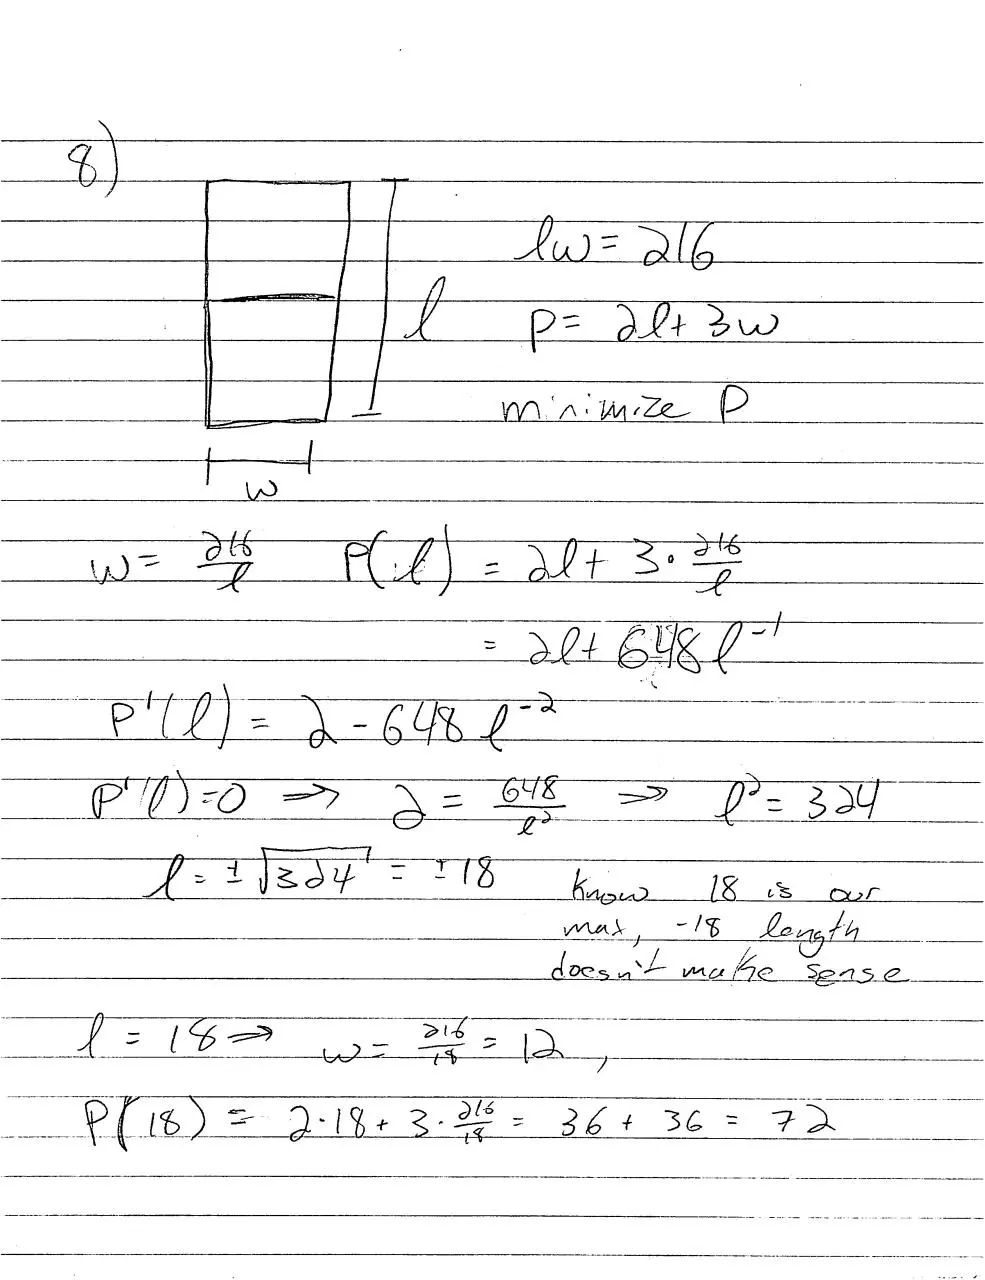 8)
lw = 216
l
P = 2l + 3w
minimize P
w
w = 216/l P(l) = 2l + 3 · 216/l
= 2l + 648 l^-1
P'(l) = 2 - 648 l^-2
P'(l) = 0 ⇒ 2 = 648/l^2 ⇒ l^2 = 324
l = ± √324 = ± 18
Know 18 is our
max, -18 length
doesn't make sense
l = 18 ⇒ w = 216/18 = 12,
P(18) = 2·18 + 3·216/18 = 36 + 36 = 72